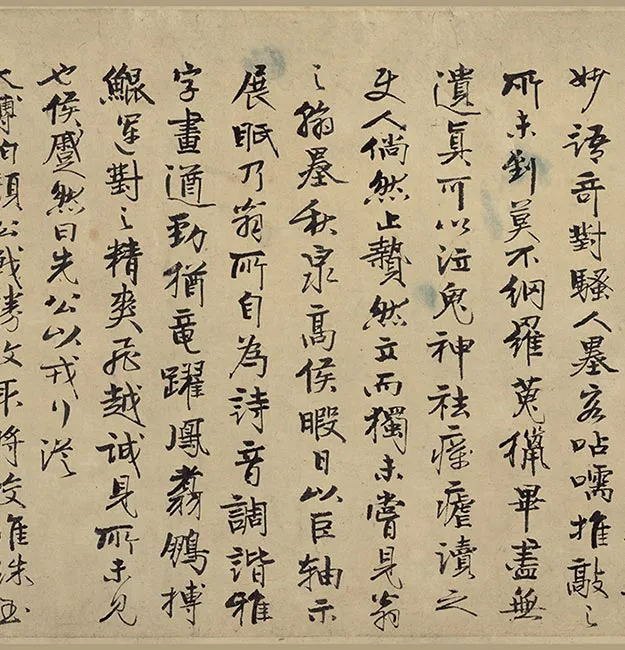 妙語奇對騷人墨客呫嚅推敲之
所未到莫不網羅蒐獵畢盡無
遺真可以泣鬼神祛瘧讀之
使人倘然止贄然立而獨未嘗見翁
之翰墨秋泉高侯暇日以巨軸示
展眂乃翁所自為詩音調諧雅
字畫遒勁猶竜躍鳳翥鵬搏
鯤運對之精爽飛越誠見所未見
也侯蹙然曰先公以戎行從
太傅伯顏公戰勝攻取將校唯珠玉